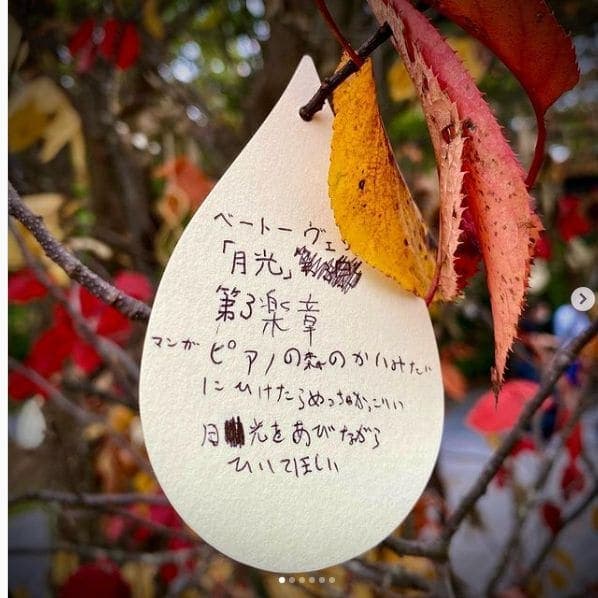 ベートーヴェ
「月光」
第3楽章
マンガ ピアノの森のかいみたいに
にひけたらめっちゃかっこいい
月光をあびながら
ひいてほしい